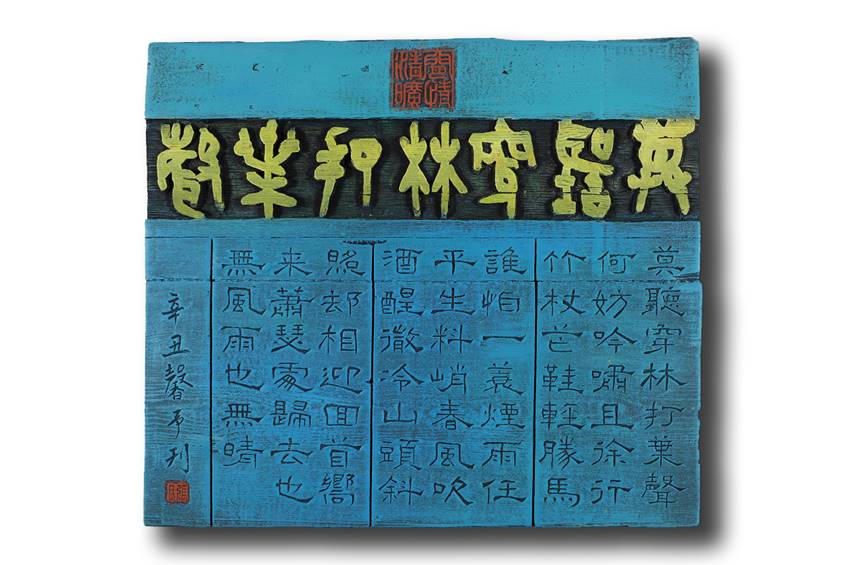 清曠
莫聽穿林打葉聲
莫聽穿林打葉聲
何妨吟嘯且徐行
竹杖芒鞋輕勝馬
誰怕一蓑煙雨任
平生料峭春風吹
酒醒微冷山頭斜
照却相迎回首嚮
来蕭瑟處歸去也
無風雨也無晴
辛丑馨刊